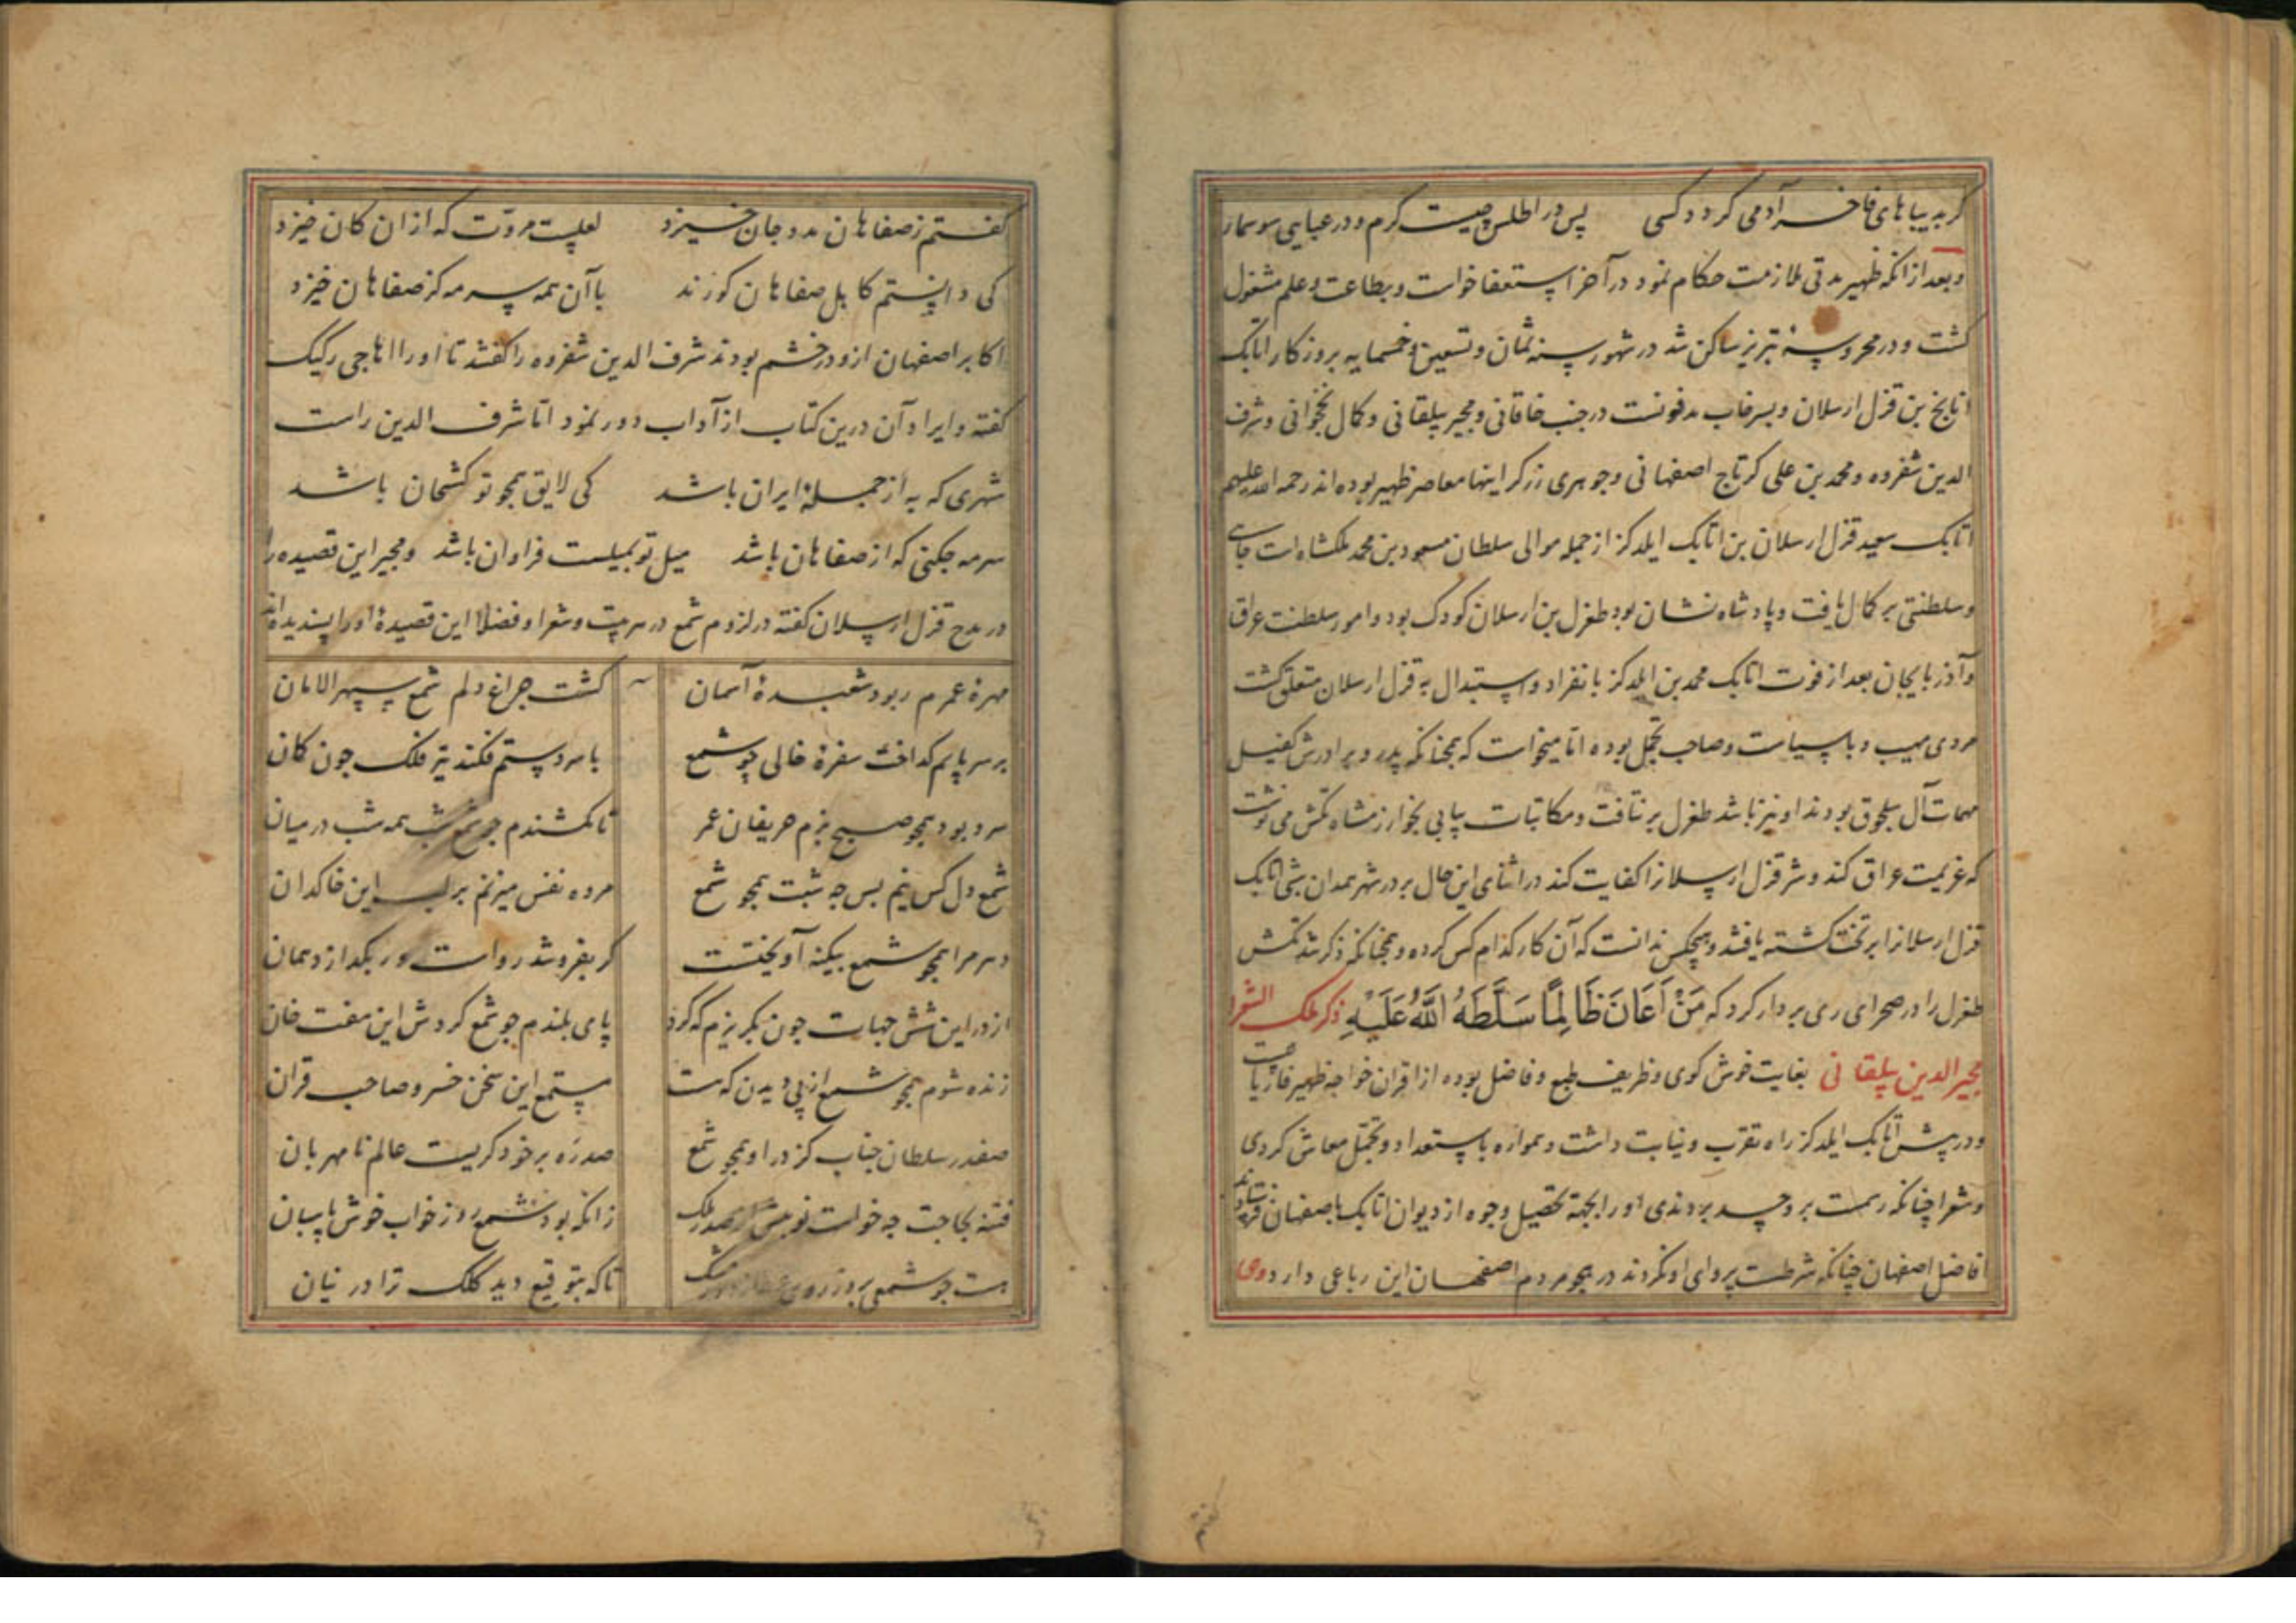 کر بدیباهای فاخر آدمی کردد کسی پس در اطلس چیست کرم و در عبایی سوسمار
و بعد از انکه ظهیر مدتی ملازمت حکام نمود در آخر استعفا خواست و بطاعت و علم مشغول
کشت و در محروسهٔ تبریز ساکن شد در شهور سنه ثمان و تسعین و خمسمایه بروزکار اتابک
بن قزل ارسلان و بسرخاب مدفونست در جنب خاقانی و مجیر بیلقانی و کمال نخجوانی و شرف
الدین شفروه و محمد بن علی کرتاج اصفهانی و جوهری زرکر اینها معاصر ظهیر بوده اند رحمه الله علیهم
اتابک سعید قزل ارسلان بن اتابک ایلدکز از جمله موالی سلطان مسعود بن محمد ملکشاه است جاهی
و سلطنتی بر کمال یافت و پادشاه نشان بود طغرل بن ارسلان کودک بود و امور سلطنت عراق
و آذربایجان بعد از فوت اتابک محمد بن ایلدکز بانفراد و استبدال به قزل ارسلان متعلق کشت
مردی مهیب و با سیاست و صاحب تجمل بوده اما میخواست که همچنانکه پدر و برادرش کفیل
مهمات آل سلجوق بودند او نیز باشد طغرل بر نتافت و مکاتبات پیاپی بخوارزمشاه تکش می نوشت
که عزیمت عراق کند و شر قزل ارسلانرا کفایت کند در اثنای این حال بر در شهر همدان شبی اتابک
قزل ارسلانرا بر تخت کشته یافتند و هیچکس ندانست که آن کار کدام کس کرده و همچنانکه ذکر شد تکش
طغرل را در صحرای ری بر دار کرد که مَنْ اَعَانَ ظَالِمًا سَلَّطَهُ اللَّهُ عَلَیْهِ ذکر ملک الشعرا
مجیر الدین بیلقانی بغایت خوش کوی و ظریف طبع و فاضل بوده از اقران خواجه ظهیر فاریابیست
و در پیش اتابک ایلدکز راه تقرب و نیابت داشت و همواره باستعداد و تجمل معاش کردی
و شعرا چنانکه رسمت برو حسد بردندی اورا بجهة تحصیل وجوه از دیوان اتابک باصفهان فرستادند
افاضل اصفهان چنانکه شرطست پروای او نکردند در هجو مردم اصفهان این رباعی دارد
کفتم ز صفاهان مدد جان خیزد لعلیست مروّت که از ان کان خیزد
کی دانستم کاهل صفاهان کورند با آن همه سرمه کز صفاهان خیزد
اکابر اصفهان ازو در خشم بودند شرف الدین شفروه را کفتند تا اورا اهاجی رکیک
کفته و ایراد آن درین کتاب از آداب دور نمود اما شرف الدین راست
شهری که به از جملهٔ ایران باشد کی لایق همچو تو کشخان باشد
سرمه چکنی که از صفاهان باشد میل تو بمیلست فراوان باشد و مجیر این قصیده را
در مدح قزل ارسلان کفته در لزوم شمع در هر بیت و شعرا و فضلا این قصیدهٔ اورا پسندیده اند
مهرهٔ عمرم ربود شعبدهٔ آسمان کشت چراغ دلم شمع سپهر الامان
بر سر پایم کداخت سفرهٔ خالی چو شمع با مر و ستم فکند تیر فلک چون کان
سرد بود همچو صبح بزم حریفان عمر تا کشندم چو شمع شب همه شب در میان
شمع دل کس نیم بس چه شبت همچو شمع مرده نفس میزنم بر لب این خاکدان
دهر مرا همچو شمع بیکنه آویختست کر بفروشد رواست ور بکدازد همان
از در این شش جهات چون بکریزم که کرد پای بلندم چو شمع کردش این هفت خان
زنده شوم همچو شمع از پی دیدن که هست مستمع این سخن خسرو صاحب قران
صفدر سلطان جناب کز در او همچو شمع صدره بر خود کریست عالم نا مهربان
فتنه بجا جست چه خواست زانکه بود شمع روز خواب خوش پاسبان
هست چو شمعی بروز روی تا که بتوقیع دید کلک ترا در نیان